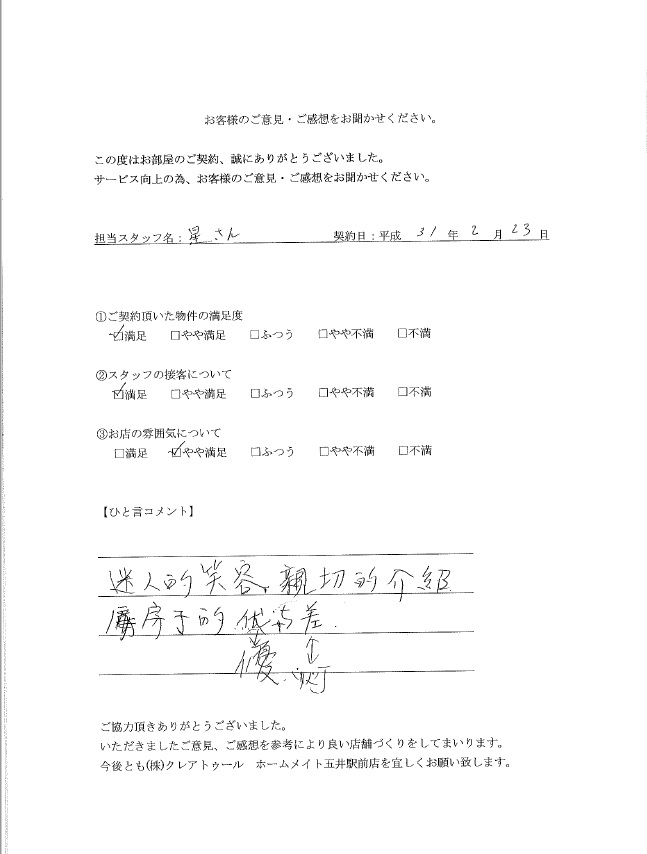 お客様のご意見・ご感想をお聞かせください。
この度はお部屋のご契約、誠にありがとうございました。
サービス向上の為、お客様のご意見・ご感想をお聞かせください。
担当スタッフ名：星さん 契約日：平成 31 年 2 月 23 日
①ご契約頂いた物件の満足度
☑満足 □やや満足 □ふつう □やや不満 □不満
②スタッフの接客について
☑満足 □やや満足 □ふつう □やや不満 □不満
③お店の雰囲気について
□満足 □☑やや満足 □ふつう □やや不満 □不満
【ひと言コメント】
迷人的笑容、親切的介紹
房子的 差.
優.
ご協力頂きありがとうございました。
いただきましたご意見、ご感想を参考により良い店舗づくりをしてまいります。
今後とも(株)クレアトゥール ホームメイト五井駅前店を宜しくお願い致します。